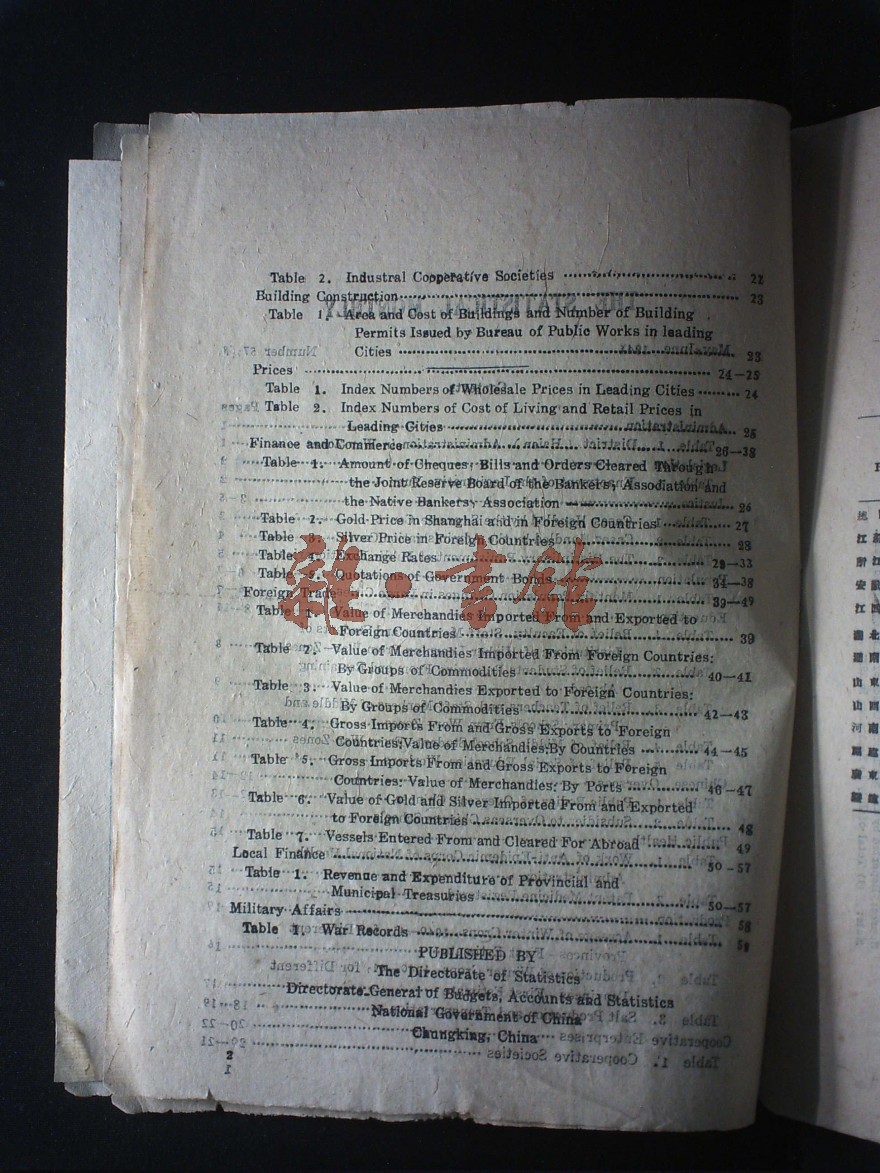 Table 2. Industral Cooperative Societies 22
Building Construction 23
Table 1. Area and Cost of Buildings and Number of Building
Permits Issued by Bureau of Public Works in leading
Cities 23
Prices 24-25
Table 1. Index Numbers of Wholesale Prices in Leading Cities 24
Table 2. Index Numbers of Cost of Living and Retail Prices in
Leading Cities 25
Finance and Commerce 26-38
Table 1. Amount of Cheques, Bills and Orders Cleared Through
the Joint Reserve Board of the Bankers, Association and
the Native Bankers, Association 26
Table 2. Gold Price in Shanghai and in Foreign Countries 27
Table 3. Silver Price in Foreign Countries 28
Table 4. Exchange Rates 29-33
Table 5. Quotations of Government Bonds 34-38
Foreign Trade 39-49
Table 1. Value of Merchandies Imported From and Exported to
Foreign Countries 39
Table 2. Value of Merchandies Imported From Foreign Countries:
By Groups of Commodities 40-41
Table 3. Value of Merchandies Exported to Foreign Countries:
By Groups of Commodities 42-43
Table 4. Gross Imports From and Gross Exports to Foreign
Countries: Value of Merchandies: By Countries 44-45
Table 5. Gross Imports From and Gross Exports to Foreign
Countries: Value of Merchandies: By Ports 46-47
Table 6. Value of Gold and Silver Imported From and Exported
to Foreign Countries 48
Table 7. Vessels Entered From and Cleared For Abroad 49
Local Finance 50-57
Table 1. Revenue and Expenditure of Provincial and
Municipal Treasuries 50-57
Military Affairs 58
Table 1. War Records
PUBLISHED BY
The Directorate of Statistics
Directorate-General of Budgets, Accounts and Statistics
National Government of China
Chungking, China
2
1